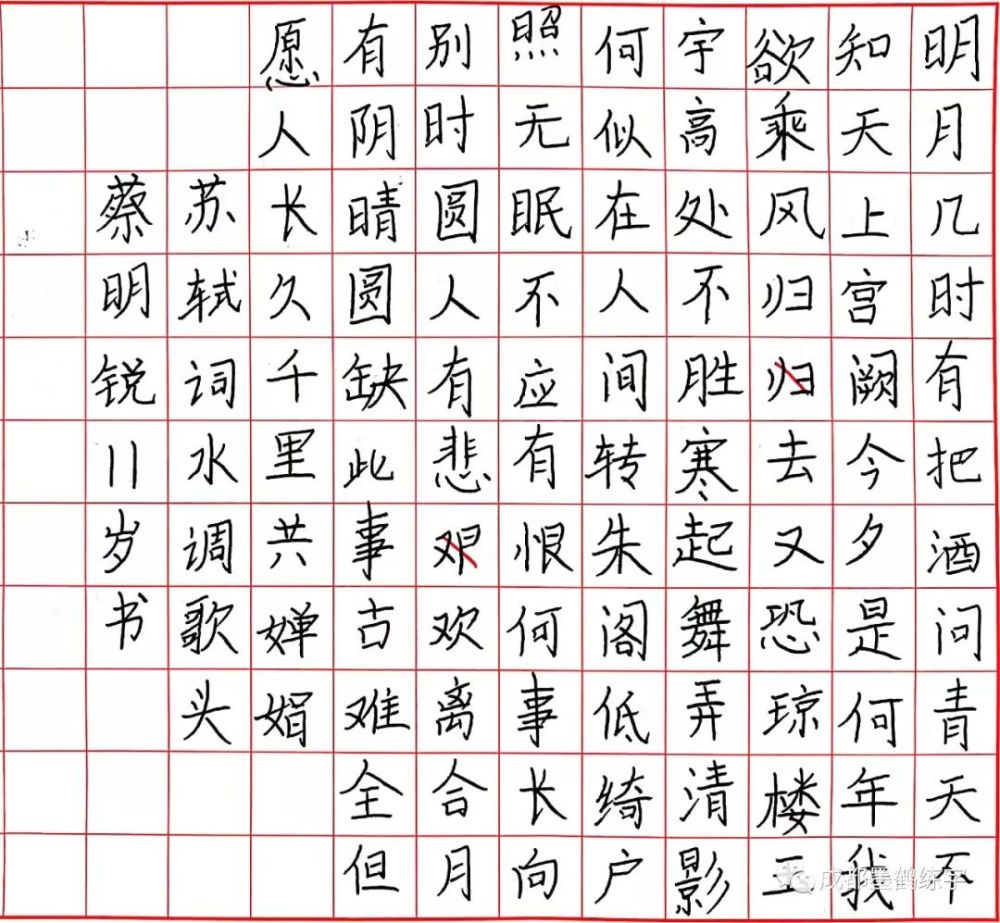 明月几时有把酒问青天不
知天上宫阙今夕是何年我
欲乘风归归去又恐琼楼玉
宇高处不胜寒起舞弄清影
何似在人间转朱阁低绮户
照无眠不应有恨何事长向
别时圆人有悲艰欢离合月
有阴晴圆缺此事古难全但
愿人长久千里共婵娟
苏轼词水调歌头
蔡明锐11岁书
成都墨鹤练字